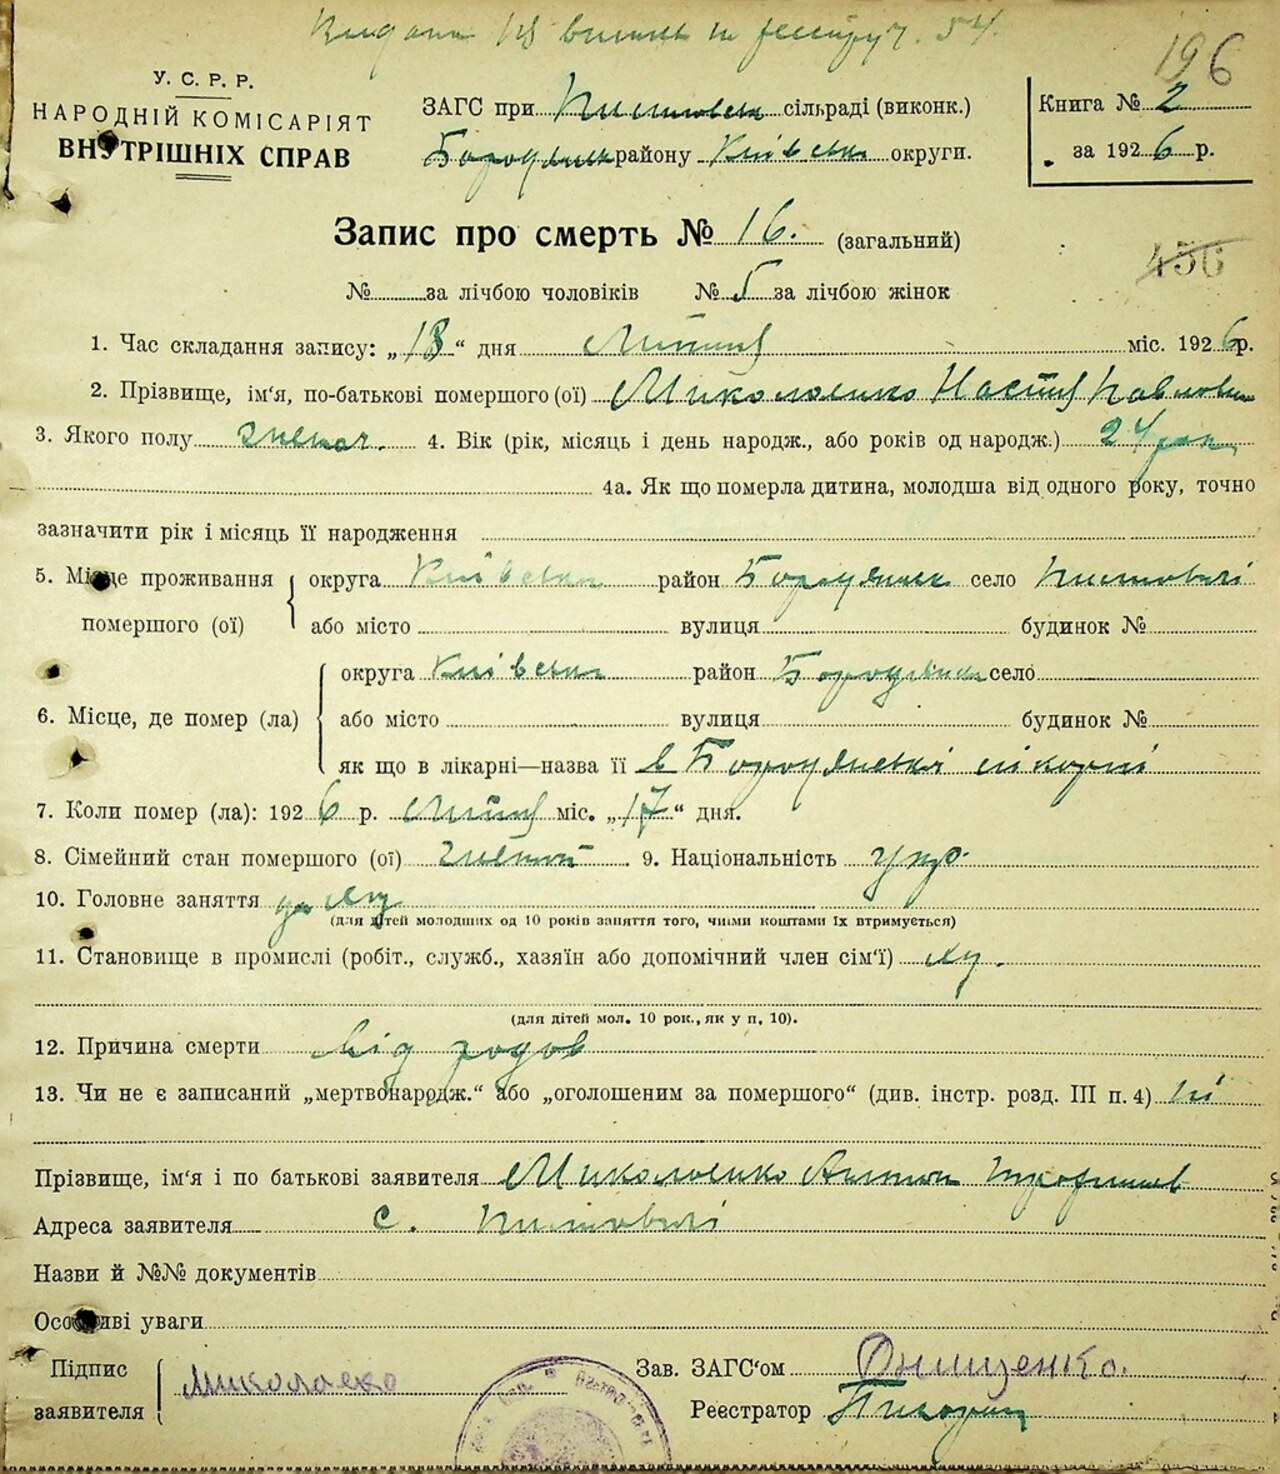 196
У. С. Р. Р.
НАРОДНІЙ КОМІСАРІЯТ
ВНУТРІШНІХ СПРАВ
ЗАГС при сільраді (виконк.)
району Київськ округи.
Книга № 2
за 1926 р.
Запис про смерть № 16. (загальний)
456
№ за лічбою чоловіків № 5 за лічбою жінок
1. Час складання запису: „18“ дня Липня міс. 1926 р.
2. Прізвище, ім'я, по-батькові помершого (ої) Миколаенко Настя Павловн
3. Якого полу 4. Вік (рік, місяць і день народж., або років од народж.) 24 рок
4а. Як що померла дитина, молодша від одного року, точно
зазначити рік і місяць її народження
5. Місце проживання округа Київськ район Бородянськ село
помершого (ої) або місто вулиця будинок №
округа Київськ район Бородянськ село
6. Місце, де помер (ла) або місто вулиця будинок №
як що в лікарні—назва її в Бородянській лікарні
7. Коли помер (ла): 1926 р. Липня міс. „17“ дня.
8. Сімейний стан помершого (ої) 9. Національність укр.
10. Головне заняття
(для дітей молодших од 10 років заняття того, чиїми коштами їх втримується)
11. Становище в промислі (робіт., служб., хазяїн або допомічний член сім'ї)
(для дітей мол. 10 рок., як у п. 10).
12. Причина смерти Від родов
13. Чи не є записаний „мертвонародж.“ або „оголошеним за помершого“ (див. інстр. розд. III п. 4) ні
Прізвище, ім'я і по батькові заявителя Миколаенко Антон
Адреса заявителя с.
Назви й №№ документів
Особливі уваги
Підпис
заявителя Миколаенко
Зав. ЗАГС'ом Онищенко.
Реєстратор